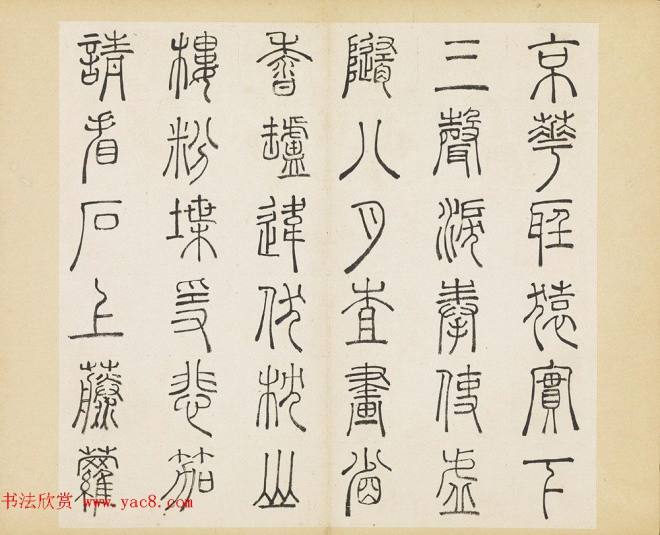 京華聽猿實下
三聲淚奉使虛
隨八月查畫省
香罏違伏枕山
樓粉堞隱悲笳
請看石上藤蘿
书法欣赏 www.yac8.com